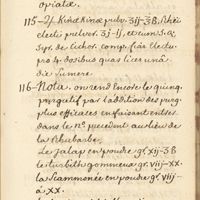 opiate.
115 - ♃ Kinæ Kinæ pulv. ʒij-ʒß, Rhei
electi pulver. ʒj-ij, et cum S. Q.
Syr. de Cichor. comp. fiat Electu-
pro 4. dosibus quas licet unâ
die sumere.
116 - Nota. on rend encore le quinq.
purgatif par l'addition des purg.
plus efficaces en faisant entrer
dans le n.º precedent au lieu de
la Rhubarbe.
Le Jalap en poudre gr. xij-ʒß
le turbith gommeux gr. viij-xx.
la Scammonée en poudre gr. viij-
à xx.